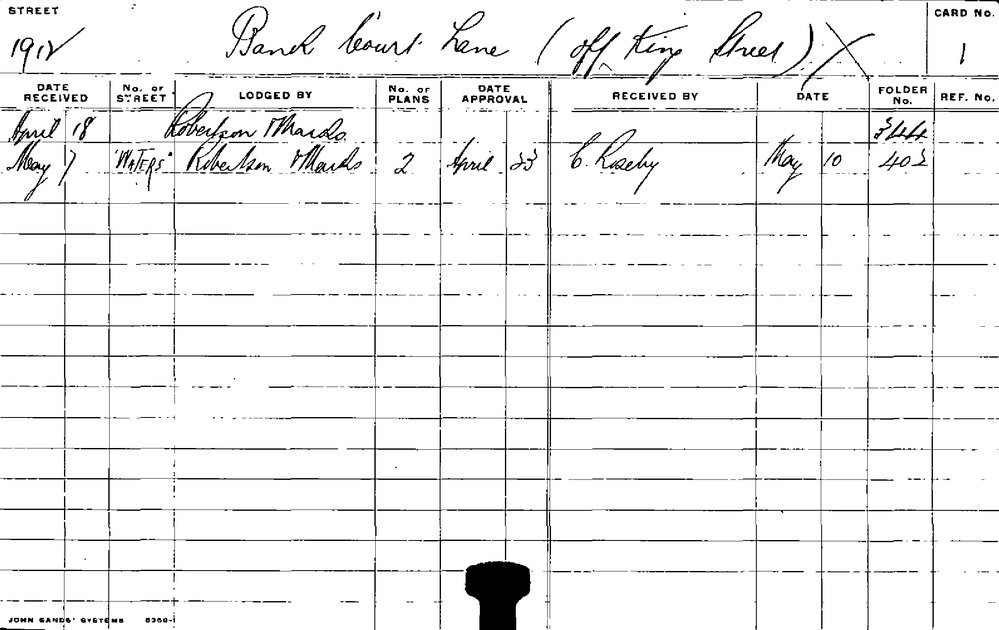 STREET
CARD No.
1912 Bank Court Lane (off King Street) X
1
DATE RECEIVED No. of STREET LODGED BY No. of PLANS DATE APPROVAL RECEIVED BY DATE FOLDER No. REF. No.
April 18 Robertson & Marks 344
May 7 "WATERS" Robertson & Marks 2 April 23 C. Roseby May 10 402
JOHN SANDS' SYSTEMS